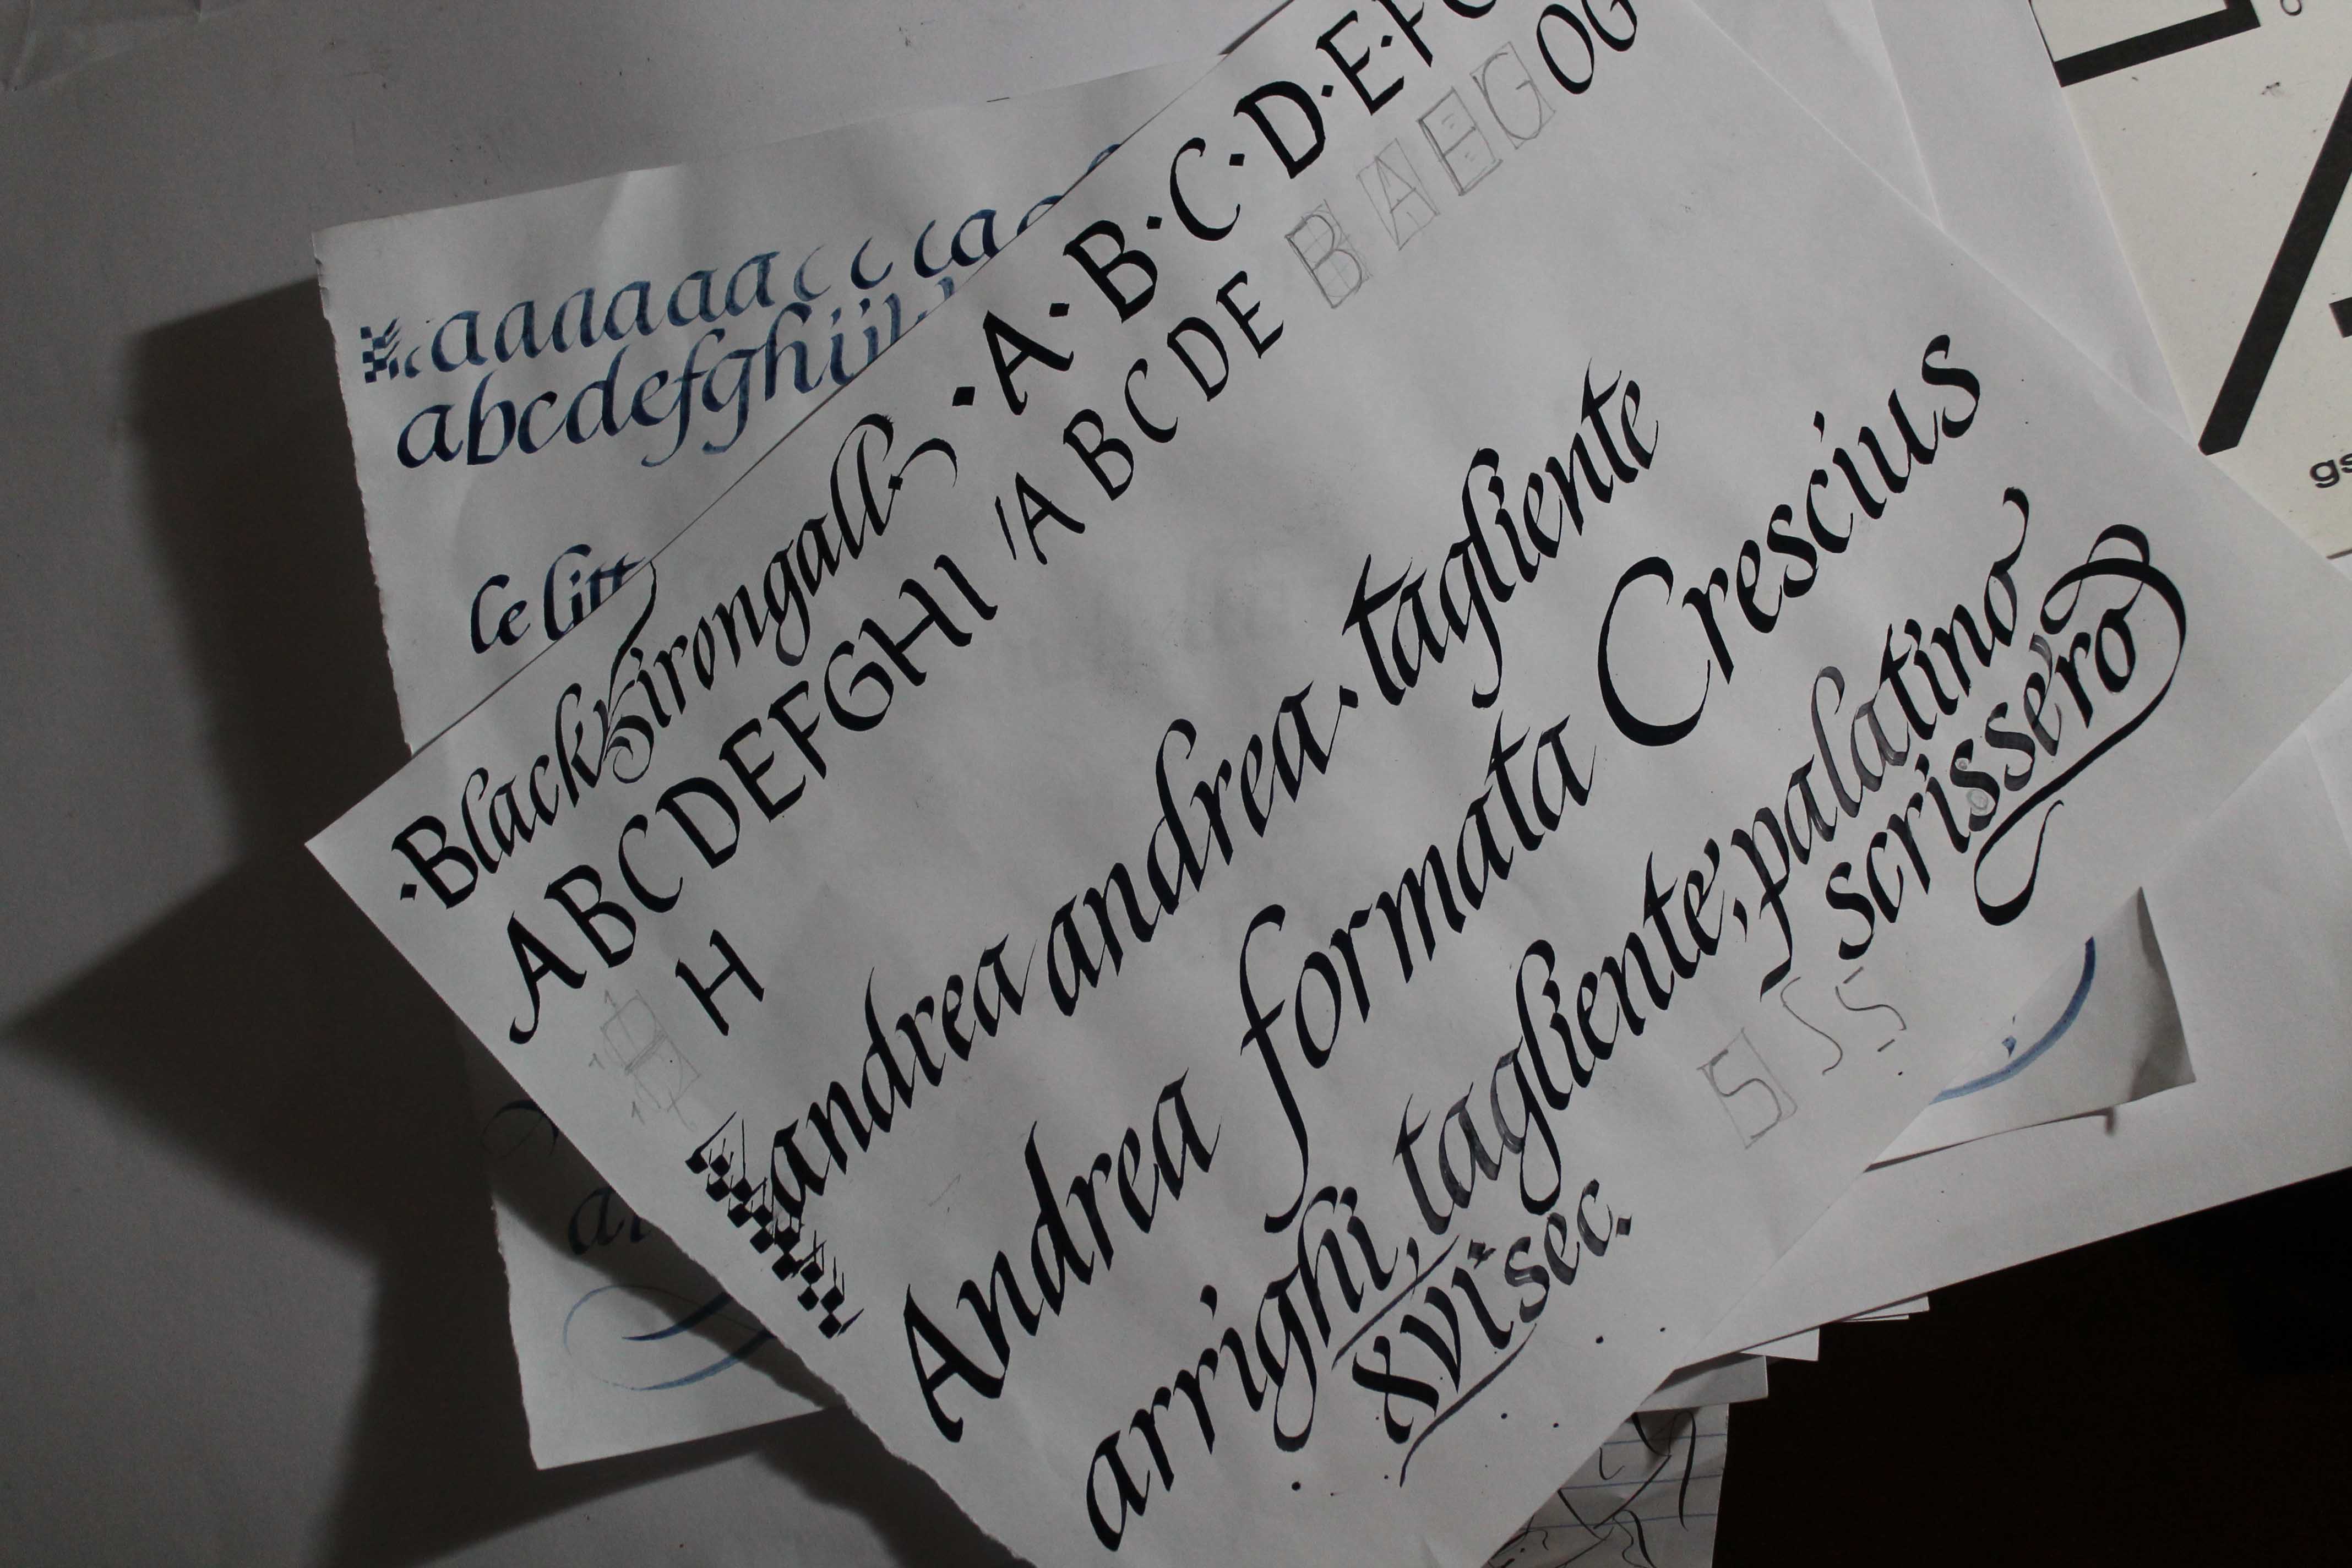 aaaaaa c c ca
abcdefghiijl
le litt
·Blackirongall·
·A·B·C·D·E·F
ABCDEFGHI 'ABCDE BAEG OG
H
andrea andrea·tagliente
Andrea formata Crescius
arrighi, tagliente, palatino
scrissero
xvi sec.
S S S
gs